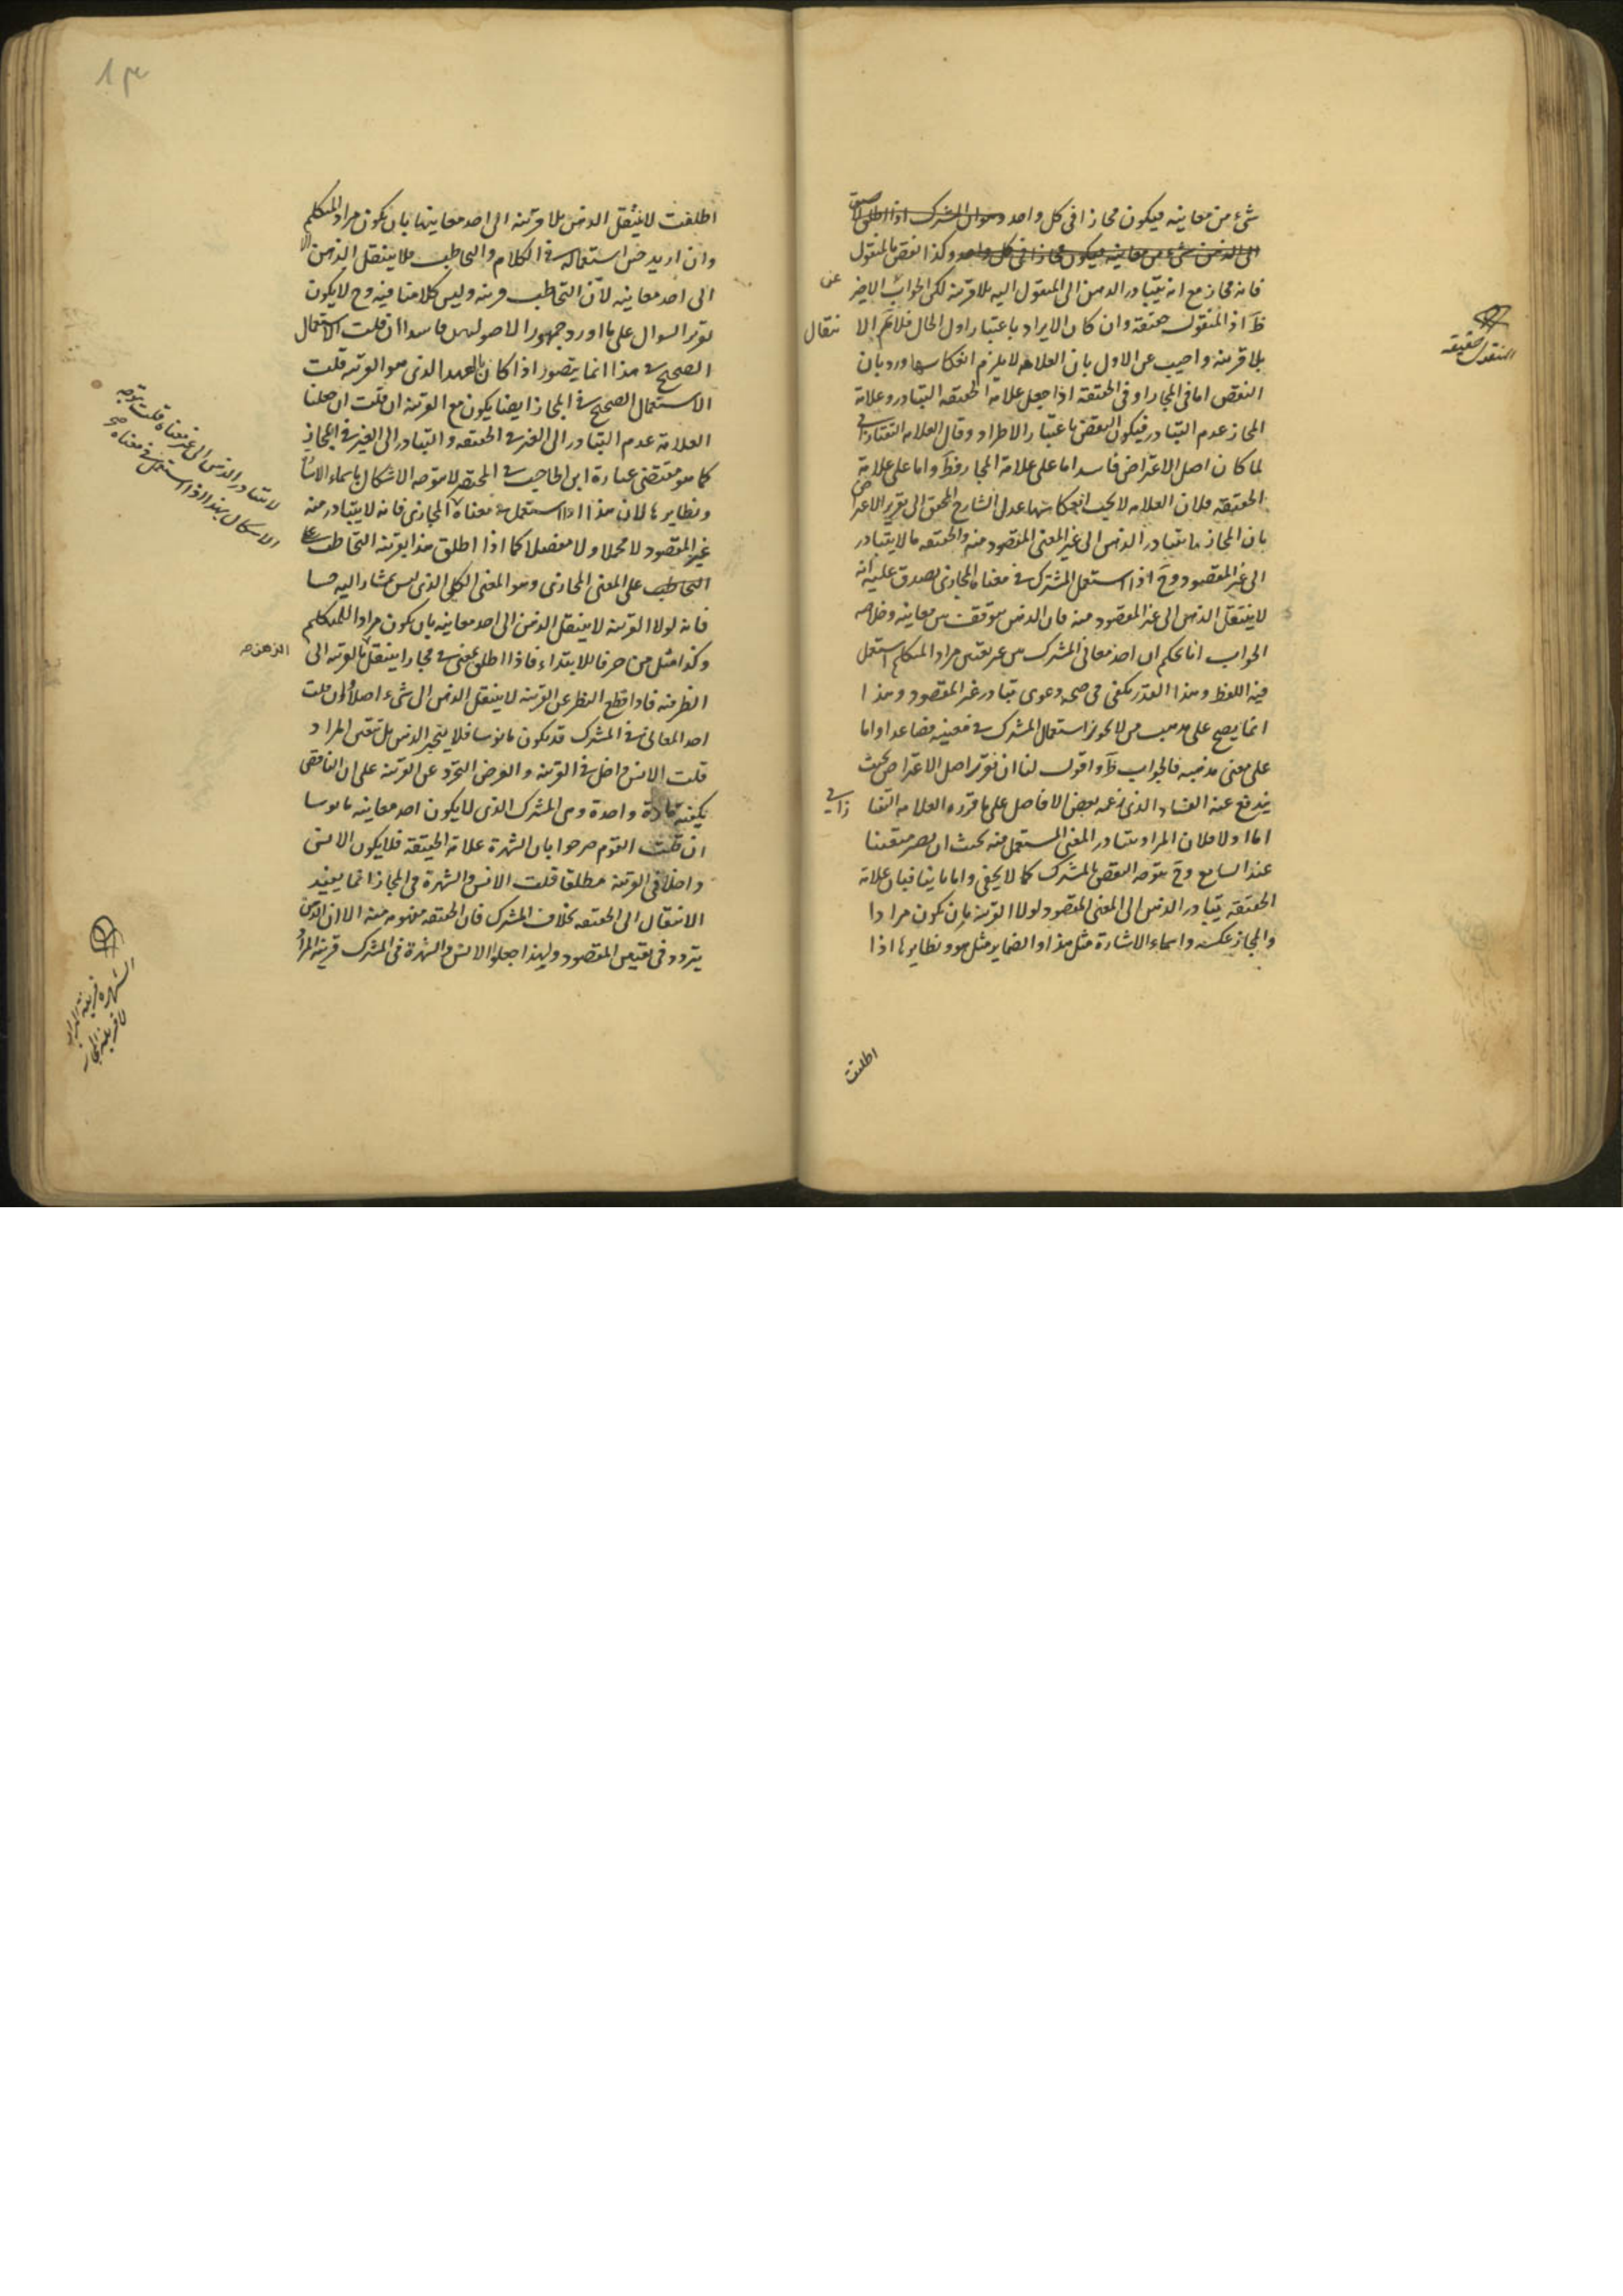 شىء من معانيه فيكون مجازا فى كل واحد وسوال المشترك اذا اطلق لا يسبق
الى الذهن شىء من معانيه فيكون مجازا فى كل واحد وكذا النقض بالمنقول
فانه مجاز مع انه يتبادر الذهن الى المنقول اليه بلا قرينة لكن الجواب الاخير عن
ظ اذ المنقول حقيقة وان كان الايراد باعتبار اول الحال فلا نم الا نتقال
بلا قرينه واجيب عن الاول بان العلامه لا يلزم انعكاسها ورد بان
النقض اما فى المجاز او فى الحقيقة اذا جعل علامة الحقيقه التبادر وعلامة
المجاز عدم التبادر فيكون النقض باعتبار الاطراد وقال العلامه التفتازانى
لما كان اصل الاعتراض فاسدا اما على علامة المجاز فظ واما على علامة
الحقيقة فلان العلامه لا يجب انعكاسها عدل الشارح المحقق الى تقرير الاعتراض
بان المجاز ما يتبادر الذهن الى غير المعنى المقصود منه والحقيقه ما لا يتبادر
الى غير المقصود وح اذا استعمل المشترك فى معناه المجازى يصدق عليه انه
لا ينتقل الذهن الى غير المقصود منه فان الذهن يتوقف بين معانيه وخلاصه
الجواب انا نحكم ان احد معانى المشترك من غير تعيين مراد المتكلم استعمل
فيه اللفظ وهذا القدر يكفى فى صحه دعوى تبادر غير المقصود وهذا
انما يصح على مذهب من لا يجوز استعمال المشترك فى معنييه فصاعدا واما
على معنى مذهبه فالجواب ظ واقول لنا ان نقرر اصل الاعتراض بحيث
يندفع عنه الفساد الذى زعمه بعض الافاضل على ما قرره العلامه التفتا زانى
اما اولا فلان المراد بتبادر المعنى المستعمل فيه بحيث ان يصير متعينا
عند السامع وح يتوجه النقض بالمشترك كما لا يخفى واما ثانيا فبان علامة
الحقيقة يتبادر الذهن الى المعنى المقصود لولا القرينة بان يكون مرادا
والمجاز عكسه واسماء الاشارة مثل هذا والضماير مثل هو ونظايرها اذا
اطلقت
المنقول حقيقه
اطلقت لا ينتقل الذهن بلا قرينه الى احد معانيها بان يكون مراد المتكلم
وان اريد حين استعماله فى الكلام والتخاطب فلا ينتقل الذهن الا
الى احد معانيه لان التخاطب قرينه وليس كلامنا فيه وح لا يكون
تقرير السوال على ما اورد جمهور الاصوليين فاسدا ان قلت الاستعمال
الصحيح فى هذا انما يتصور اذا كان بالعهد الذى هو القرينه قلت
الاستعمال الصحيح فى المجاز ايضا يكون مع القرينة ان قلت ان جعلنا
العلامة عدم التبادر الى الغير فى الحقيقه والتبادر الى الغير فى المجاز
كما هو مقتضى عبارة ابن الحاجب فى المختصر لا يتوجه الاشكال باسماء الاشا
ونظايرها لان هذا اذا استعمل فى معناه المجازى فانه لا يتبادر منه
غير المقصود لا مجملا ولا مفصلا كما اذا اطلق هذا بقرينه التخاطب
التخاطب على المعنى المجازى وهو المعنى الكلى الذى ليس بمشار اليه حسا
فانه لولا القرينه لا ينتقل الذهن الى احد معانيه بان يكون مرادا للمتكلم
وكذا مثل من حرفا للابتداء فاذا اطلق بمعنى فى مجازا ينتقل بالقرينه الى
الظرفيه فاذا قطع النظر عن القرينة لا ينتقل الذهن الى شىء اصلا ان قلت
احد المعانى فى المشترك قد يكون مانوسا فلا يتحير الذهن بل يتعين المراد
قلت الانس داخل فى القرينة والفرض التجرد عن القرينة على ان الناقض
يكفيه مادة واحدة وهى المشترك الذى لا يكون احد معانيه مانوسا
ان قلت القوم صرحوا بان الشهرة علامة الحقيقة فلا يكون الانس
داخلا فى القرينة مطلقا قلت الانس والشهرة فى المجاز انما يفيد
الانتقال الى الحقيقه بخلاف المشترك فان الحقيقه مفهومه منه الا ان الذهن
يتردد فى تعيين المقصود ولهذا جعلوا الانس والشهرة فى المشترك قرينة المراد
لا يتبادر الذهن الى غير معناه قلت يتوجه
الاشكال بهذا اذا استعمل فى معناه
الذهن صح
الشهره قرينة المراد
لا قرينة المجاز